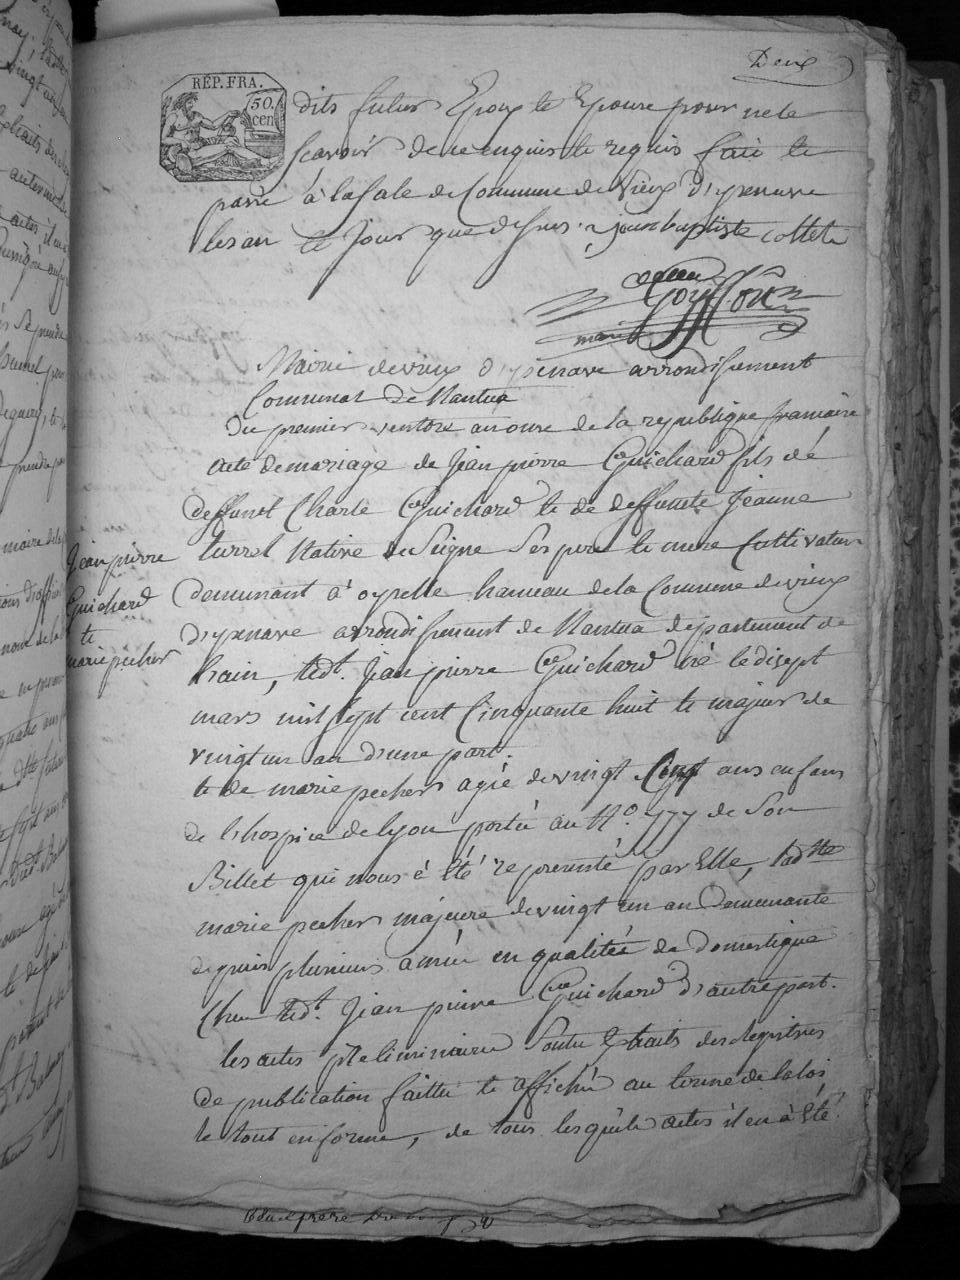 Deux
RÉP. FRA.
50.
cen
dits futur Epoux te Epouse pour ne le
scavoir de ce enquis te requis fait te
passé à la sale de Commune de vieux d'izenave
les an te Jour que dessus. jean baptiste collet
Goyffon
maire
Mairie de vieux d'izenave arrondissement
Communal de Nantua
Du premier ventose an onze de la republique francaise
acte de mariage de Jean pierre Guichard fils de
deffunct Charle Guichard te de deffuncte Jeanne
turrel Native de Ses pere te mere Cultivateur
Jean pierre
Guichard
te
marie pecher
demeurant à oyselle hameau de la Commune de vieux
d'izenave arrondissement de Nantua departement de
hain, ledt. Jean pierre Guichard né le disept
mars mil sept cent Cinquante huit te majeur de
vingt un an d'une part.
te de marie pecher agée de vingt Cinq ans enfans
de l'hospice de lyon portée au No. 777 de Son
Billet qui nous à Eté représenté par Elle, ladtte
marie pecher majeure de vingt un an demeurante
depuis plusieurs année en qualitée de domestique
Chez ledt. Jean pierre Guichard d'autre part.
les actes préliminaire Sont Extraits des Registres
de publication faitte te affiché au terme de la loi
le tout en forme, de tous lesquels actes il en à Eté